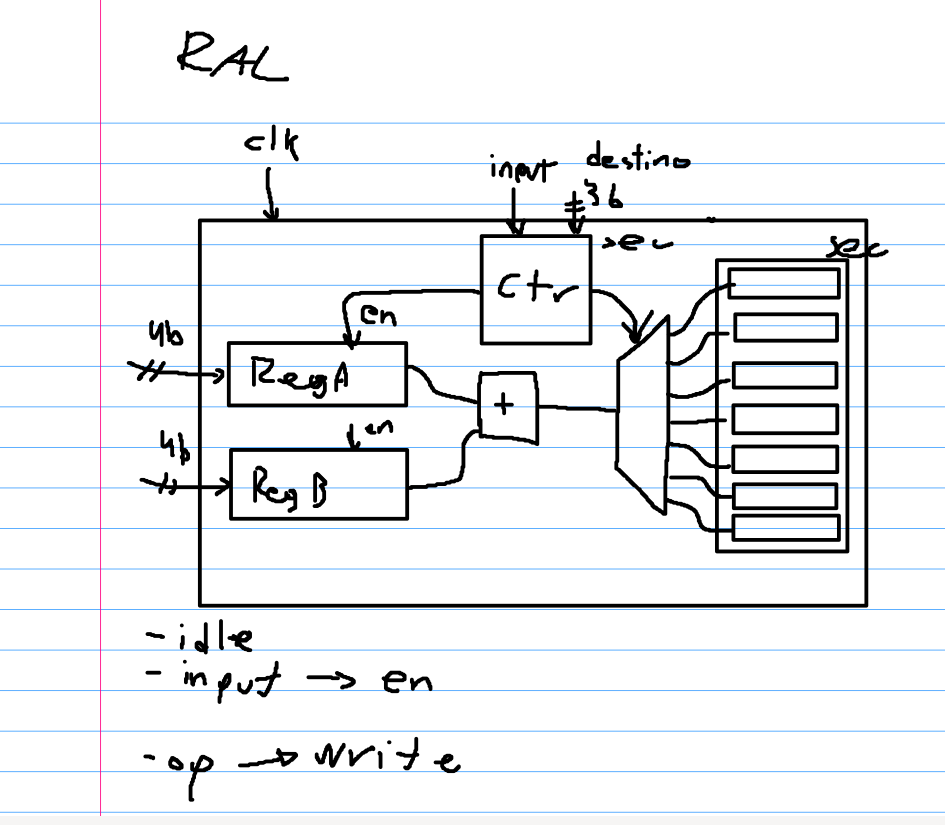 RAL
clk
input
destino
3b
Ctr
en
4b
RegA
+
en
4b
Reg B
- idle
- input → en
- op → write